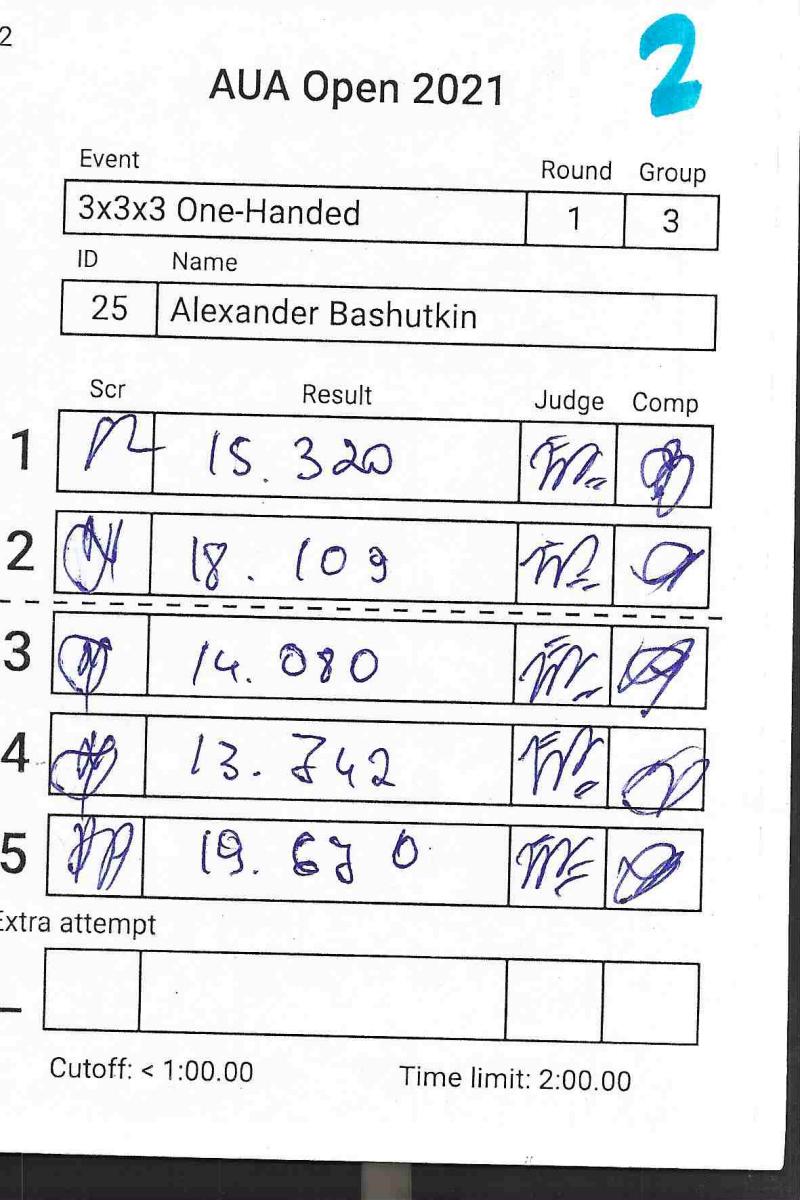 2
2
AUA Open 2021
Event Round Group
3x3x3 One-Handed 1 3
ID Name
25 Alexander Bashutkin
Scr Result Judge Comp
1 15.320
2 18.109
3 14.080
4 13.742
5 19.670
Extra attempt
_
Cutoff: < 1:00.00 Time limit: 2:00.00